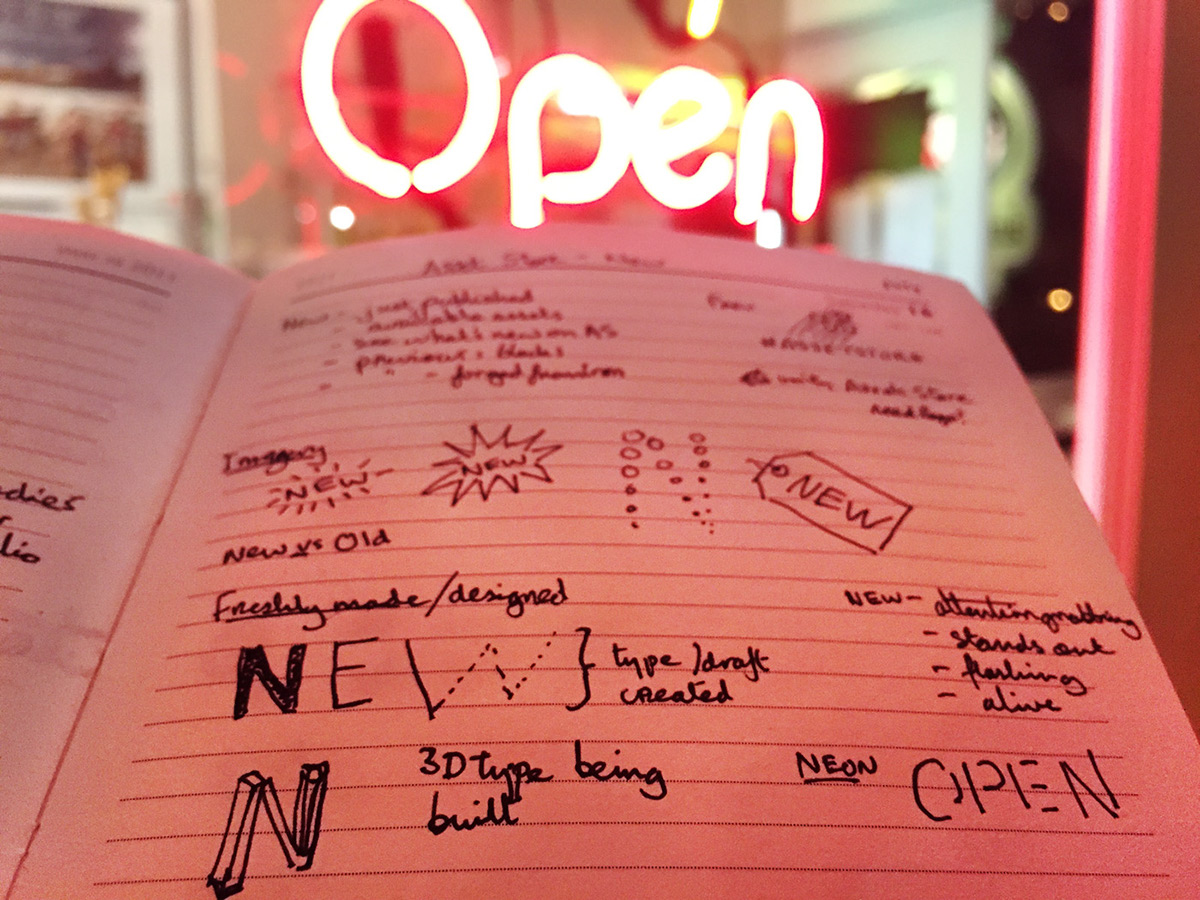 Open
Asset Store - New
New - just published
- available assets
- see what's new on AS
- previous: blocks
" - forged
with Asset Store
Imagery
NEW
NEW
NEW
New vs Old
Freshly made/designed
NEW } type/draft
created
NEW - attention grabbing
- stands out
- flashing
- alive
N
3D type being
built
NEON
OPEN
dies
lio